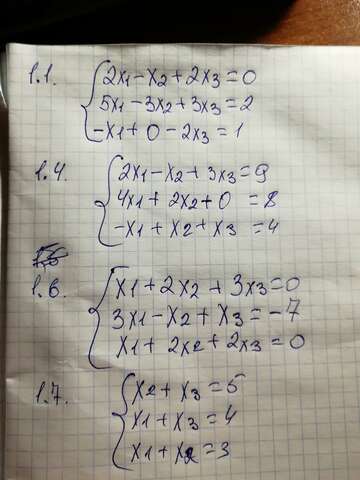 1.1. 2x1-x2+2x3=0
5x1-3x2+3x3=2
-x1+0-2x3=1
1.4. 2x1-x2+3x3=9
4x1+2x2+0=8
-x1+x2+x3=4
1.6. x1+2x2+3x3=0
3x1-x2+x3=-7
x1+2x2+2x3=0
1.7. x2+x3=5
x1+x3=4
x1+x2=3